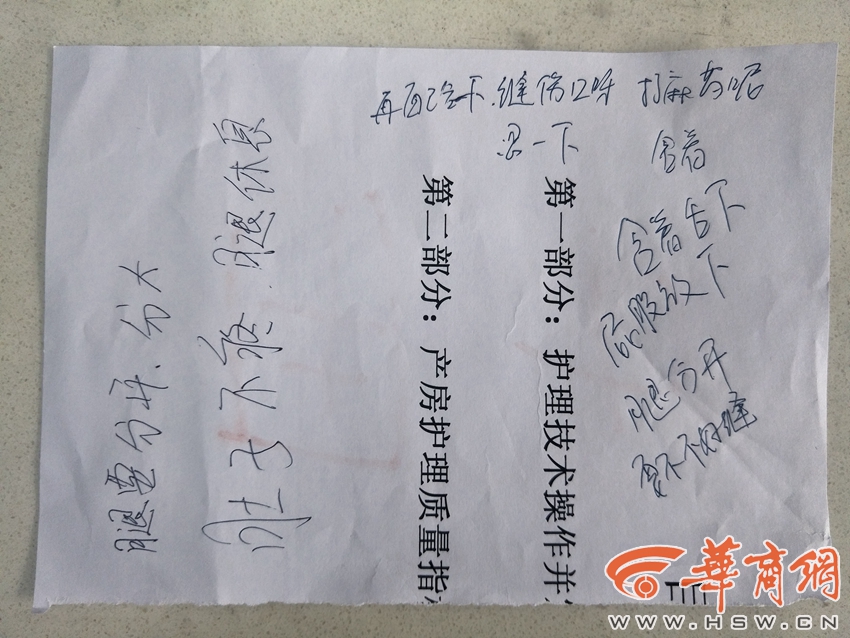 再缝伤口呀 打麻药呢
忍一下
含着
含着舌下
屁股放下
腿分开
要不不好缝
第一部分：护理技术操作并
第二部分：产房护理质量指
肚子不疼，腿休息
腿要分开、分大
華商網
WWW.HSW.CN